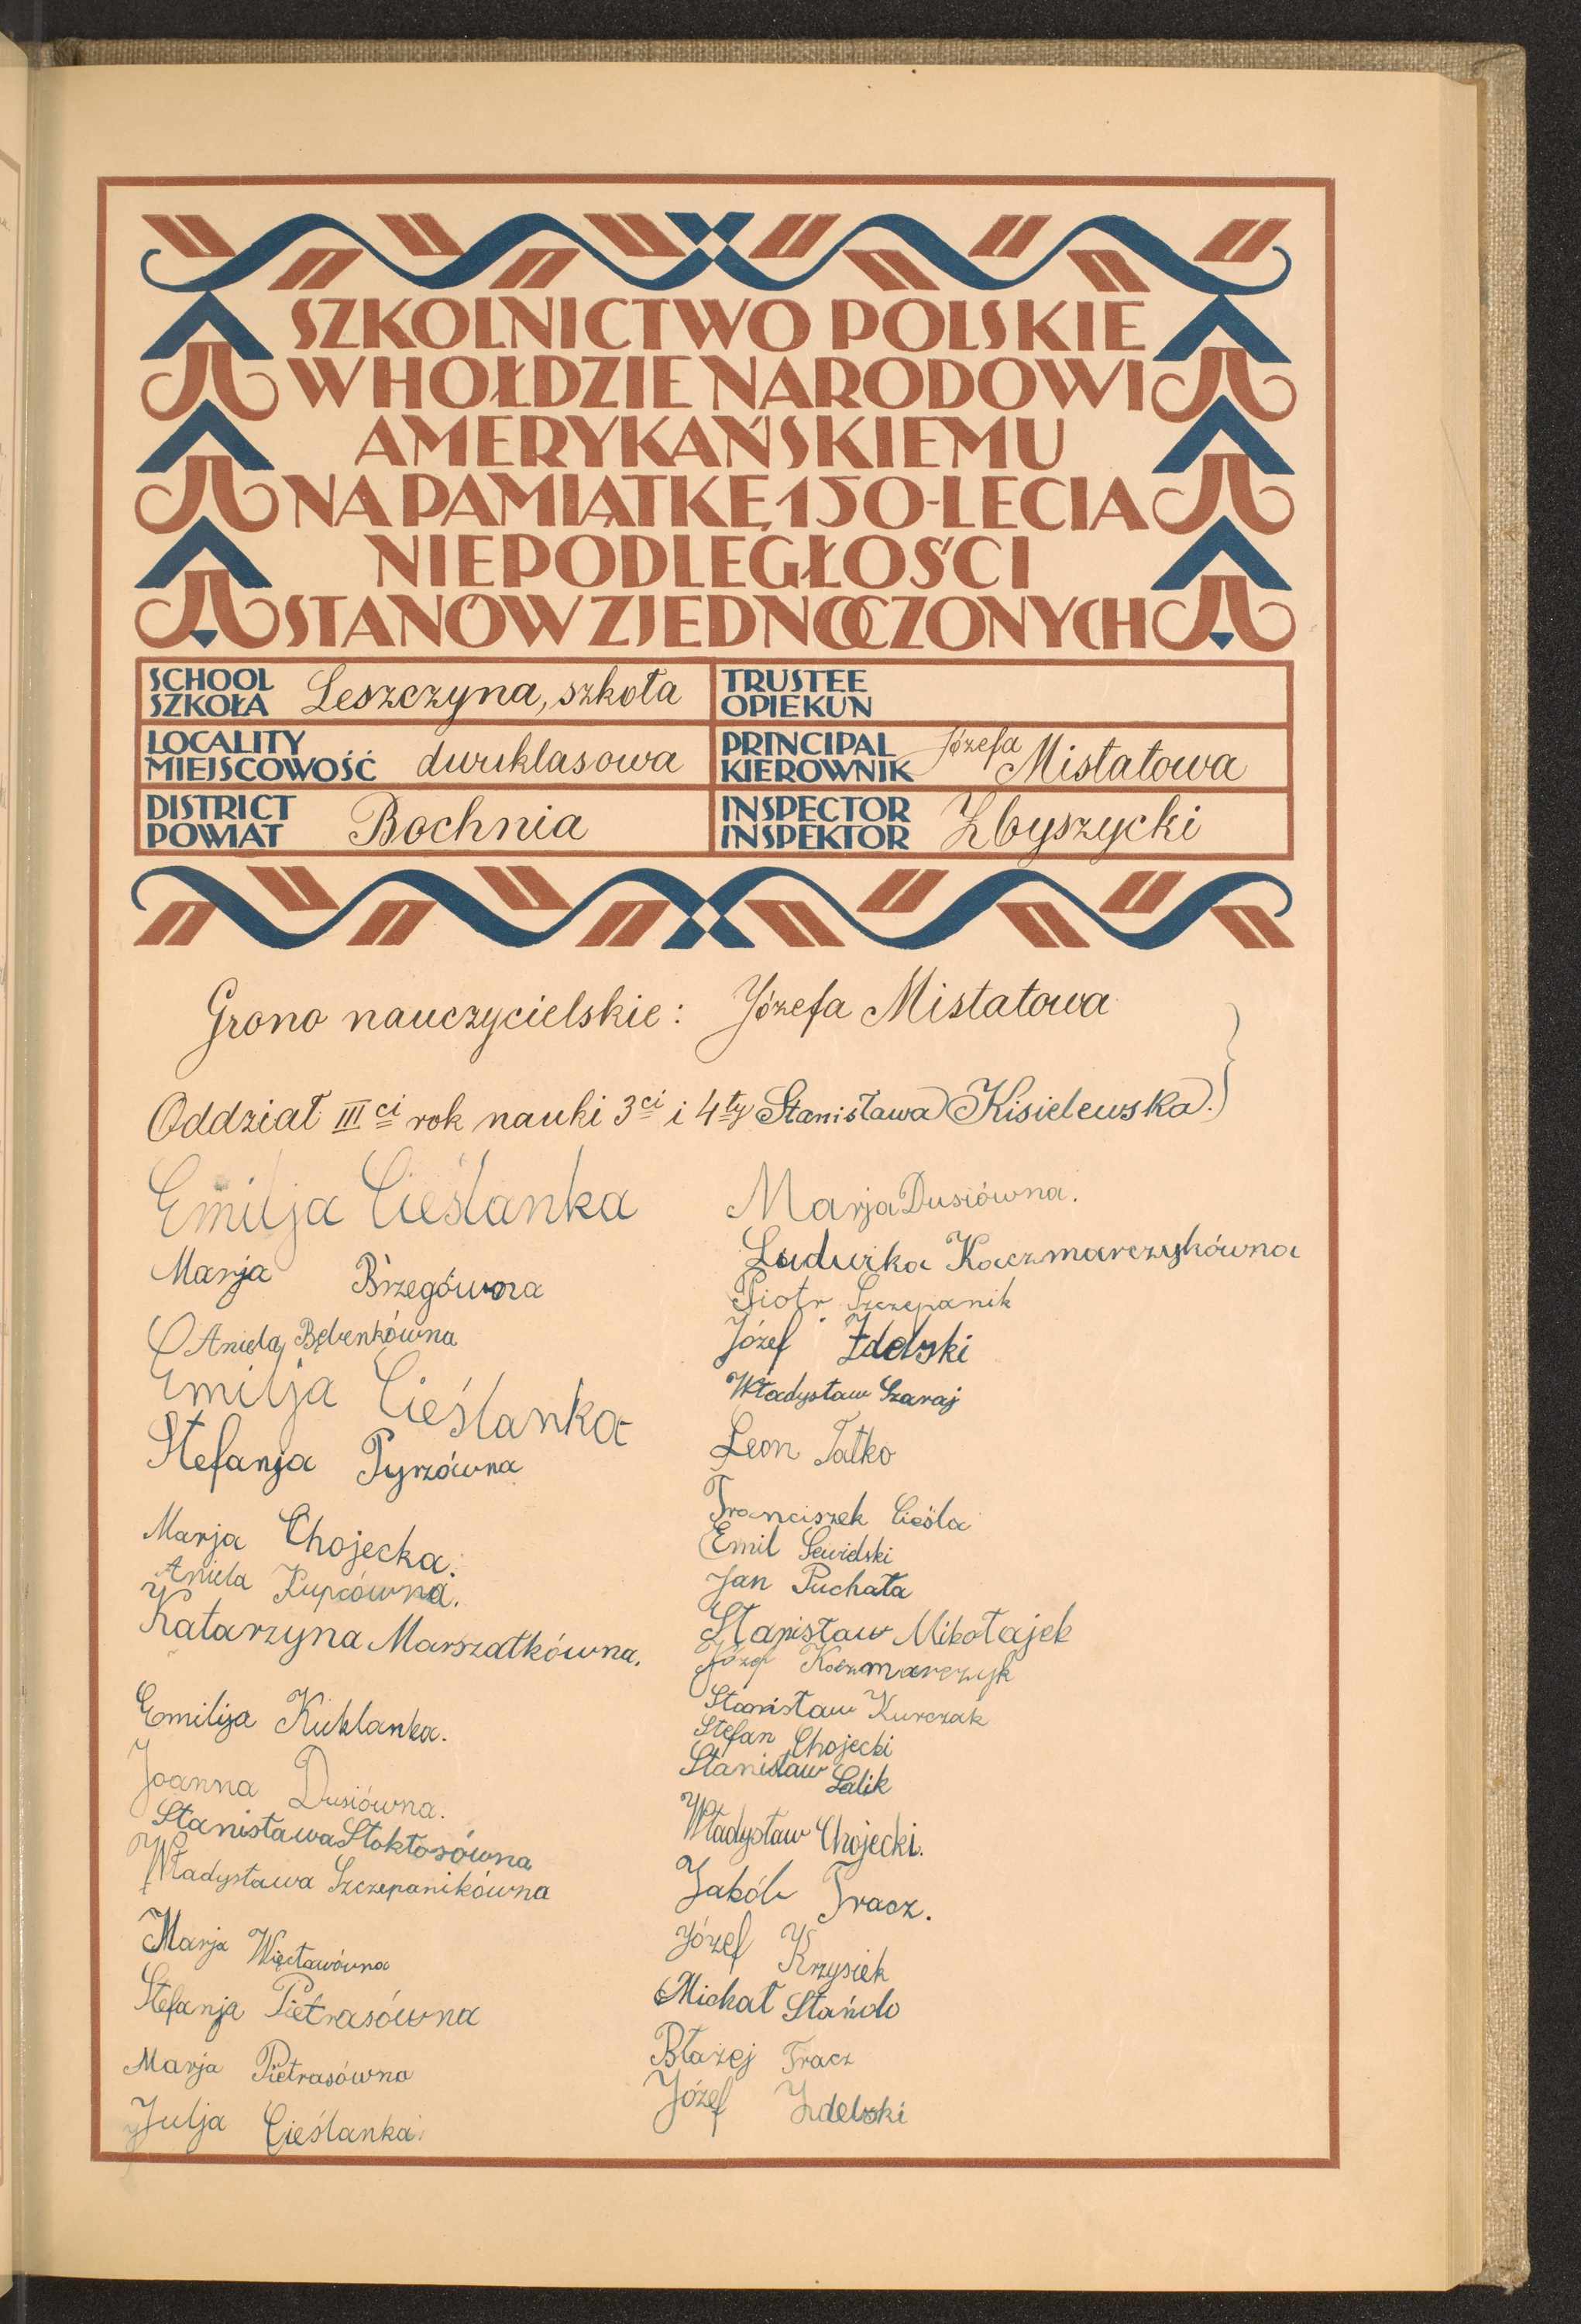 SZKOLNICTWO POLSKIE
W HOŁDZIE NARODOWI
AMERYKAŃSKIEMU
NA PAMIĄTKĘ 150-LECIA
NIEPODLEGŁOŚCI
STANÓW ZJEDNOCZONYCH
SCHOOL
SZKOŁA Leszczyna, szkoła
LOCALITY
MIEJSCOWOŚĆ dwuklasowa
DISTRICT
POWIAT Bochnia
TRUSTEE
OPIEKUN
PRINCIPAL
KIEROWNIK Józefa Mistatowa
INSPECTOR
INSPEKTOR Zbyszycki
Grono nauczycielskie: Józefa Mistatowa
Oddział III ci rok nauki 3 ci i 4 ty Stanisława Kisielewska.
Emilja Cieślanka
Marja Brzegówna
Aniela Bębenkówna
Emilja Cieślanka
Stefanja Pyrzówna
Marja Chojecka.
Aniela Kupcówna.
Katarzyna Marszałkówna.
Emilija Kuklanka.
Joanna Dusiówna.
Stanisława Stokłosówna
Władysława Szczepanikówna
Marja Więcławówna
Stefanja Pietrasówna
Marja Pietrasówna
Julja Cieślanka
Marja Dusiówna.
Ludwika Kaczmarczykówna
Piotr Szczepanik
Józef Zdebski
Władysław Szaraj
Leon Tatko
Franciszek Cieśla
Emil
Jan Puchała
Stanisław Mikołajek
Józef Kaczmarczyk
Stanisław Kurczak
Stefan Chojecki
Stanisław Lalik
Władysław Chojecki.
Jakób Tracz.
Józef Krzysiek
Michał Stańdo
Błażej Tracz
Józef Zdebski